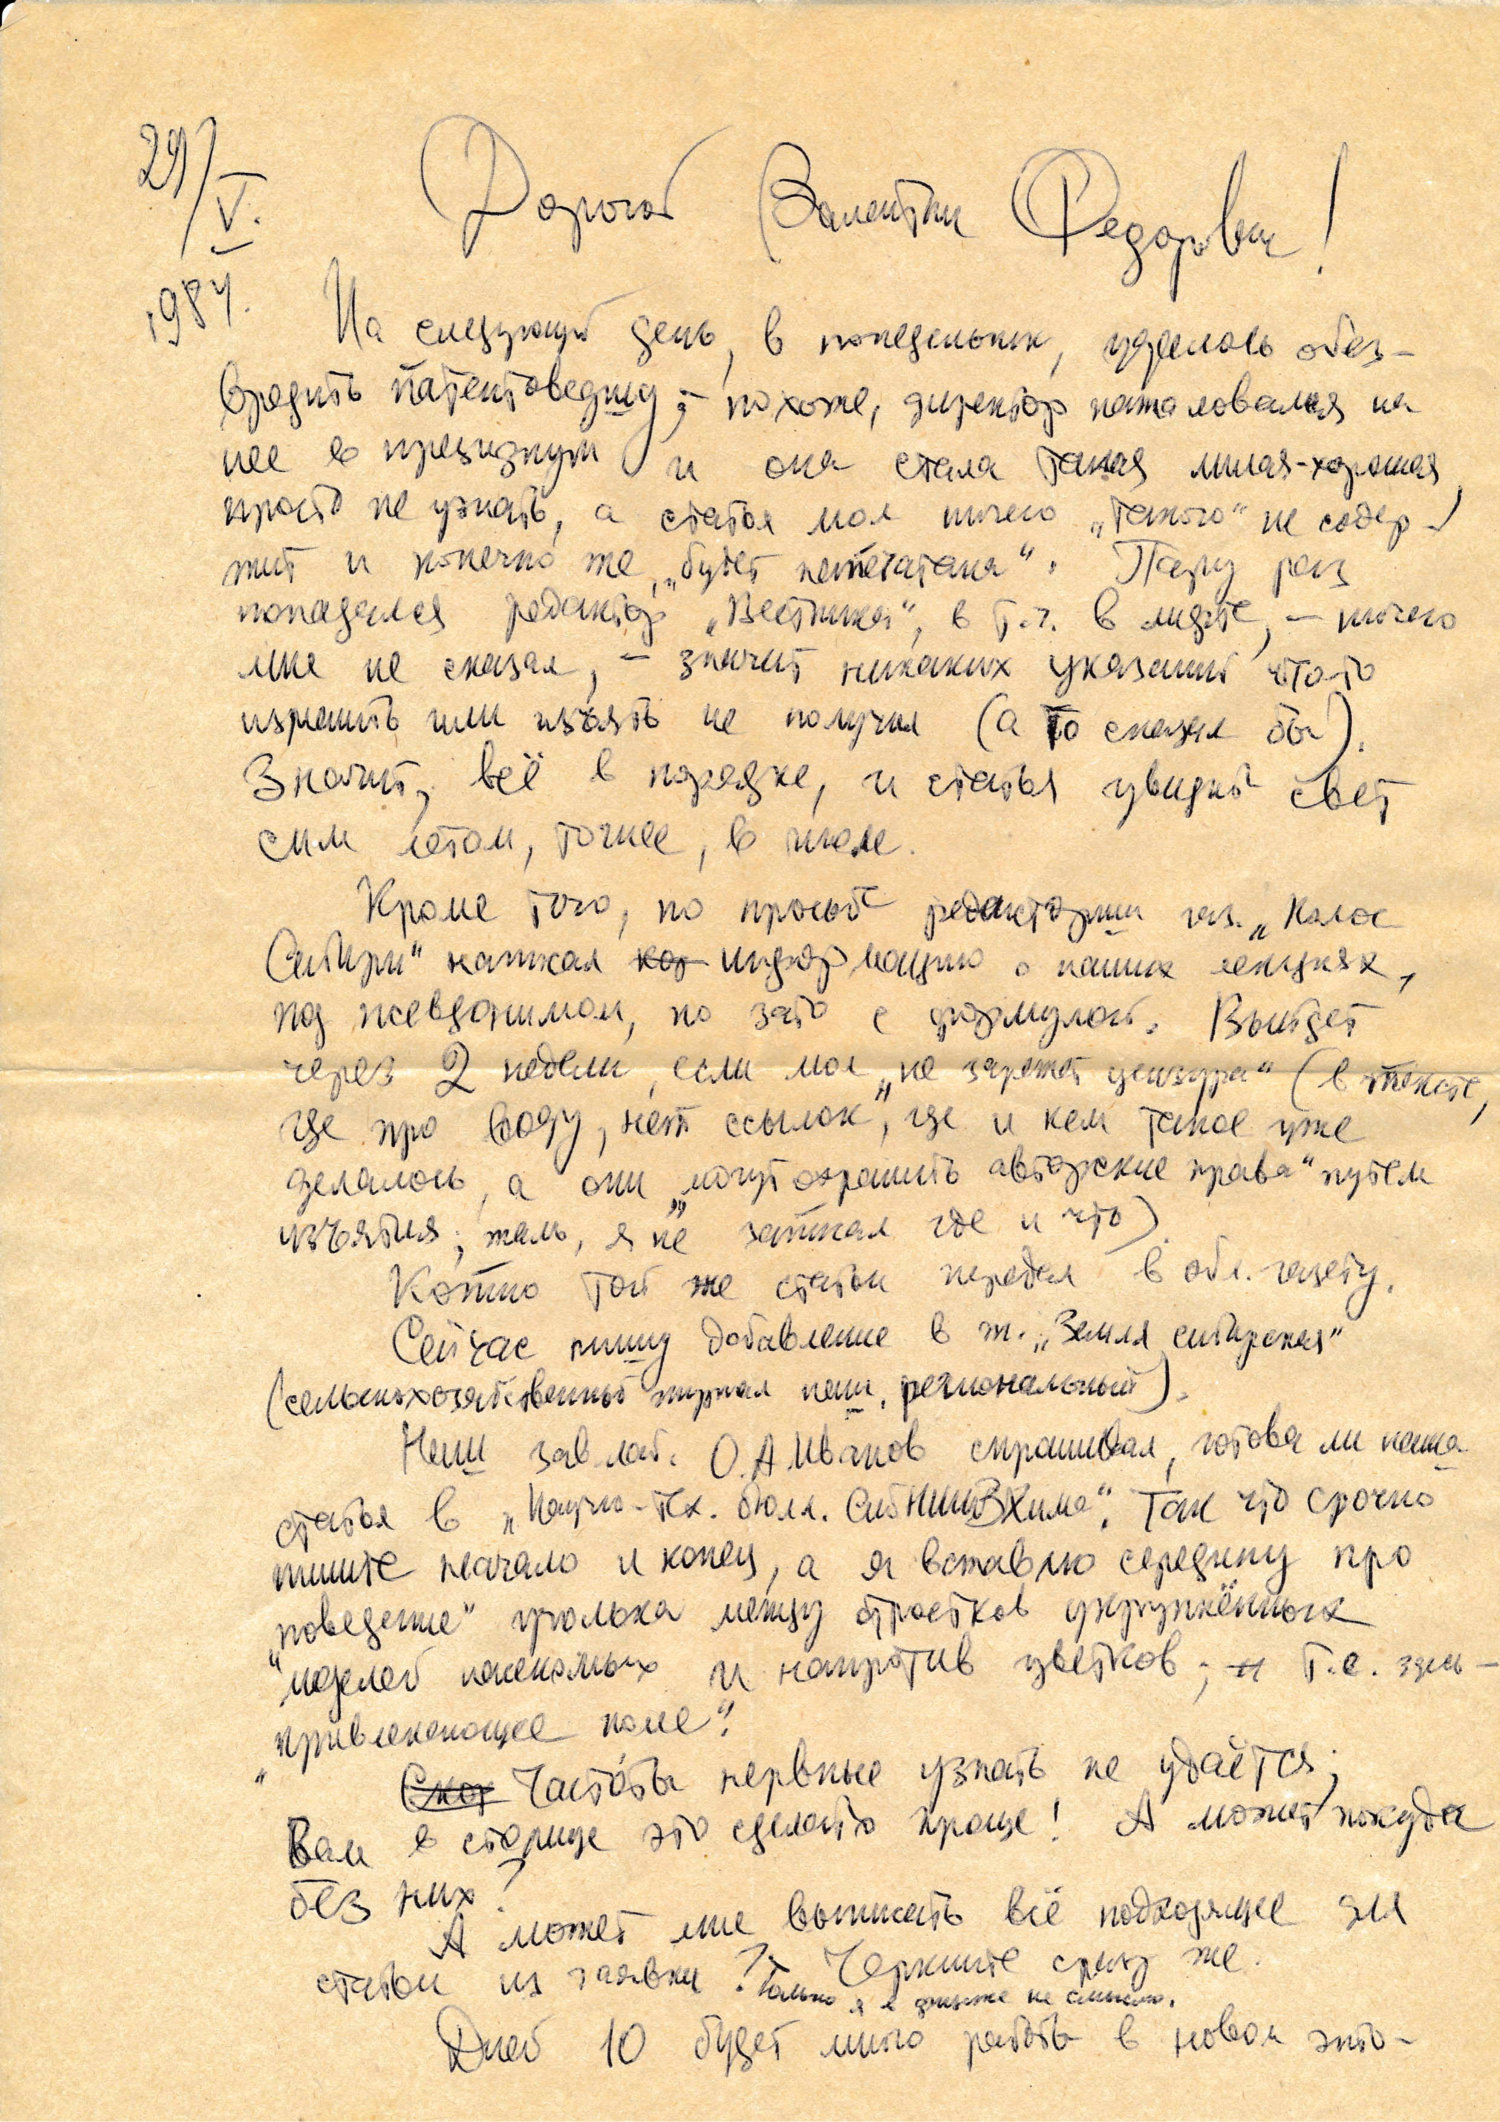 29/V.
1984.
Дорогой Валентин Федорович!
На следующий день, в понедельник, удалось обез-
вредить патентоведшу; – похоже, директор пожаловался на
нее в президиум и она стала такая милая-хорошая,
просто не узнать, а статья моя ничего „такого“ не содер-
жит и конечно же „будет напечатана“. Пару раз
попадался редактор „Вестника“, в т.ч. в лифте, – ничего
мне не сказал, – значит никаких указаний что-то
изменить или изъять не получил (а то сказал бы).
Значит, всё в порядке, и статья увидит свет
сим летом, точнее, в июле.
Кроме того, по просьбе редакторши газ. „Колос
Сибири“ написал кор информацию о наших лекциях,
под псевдонимом, но зато с формулой. Выйдет
через 2 недели, если мол „не зарежет цензура“ (в тексте,
где про воду, нет ссылок, где и кем такое уже
делалось, а они „могут охранить авторские права“ путем
изъятия; жаль, я не записал где и что).
Копию той же статьи передал в обл. газету.
Сейчас пишу добавление в ж. „Земля сибирская“
(сельскохозяйственный журнал наш, региональный).
Наш зав. лаб. О.А.Иванов спрашивал, готова ли наша
статья в „Научно-тех. бюлл. СибНИИЗХима“. Так что срочно
пишите начало и конец, а я вставлю середину про
„поведение“ уголька между отростков укрупнённых
моделей насекомых и напротив цветков; и т.е. здесь –
„привлекающее поле“.
Смот Частоты нервные узнать не удаётся;
Вам в столице это сделать проще! А может покуда
без них?
А может мне выписать всё подходящее для
статьи из заявки? Черкните сразу же.
Только я в физике не смыслю.
Дней 10 будет много работы в новом энто-